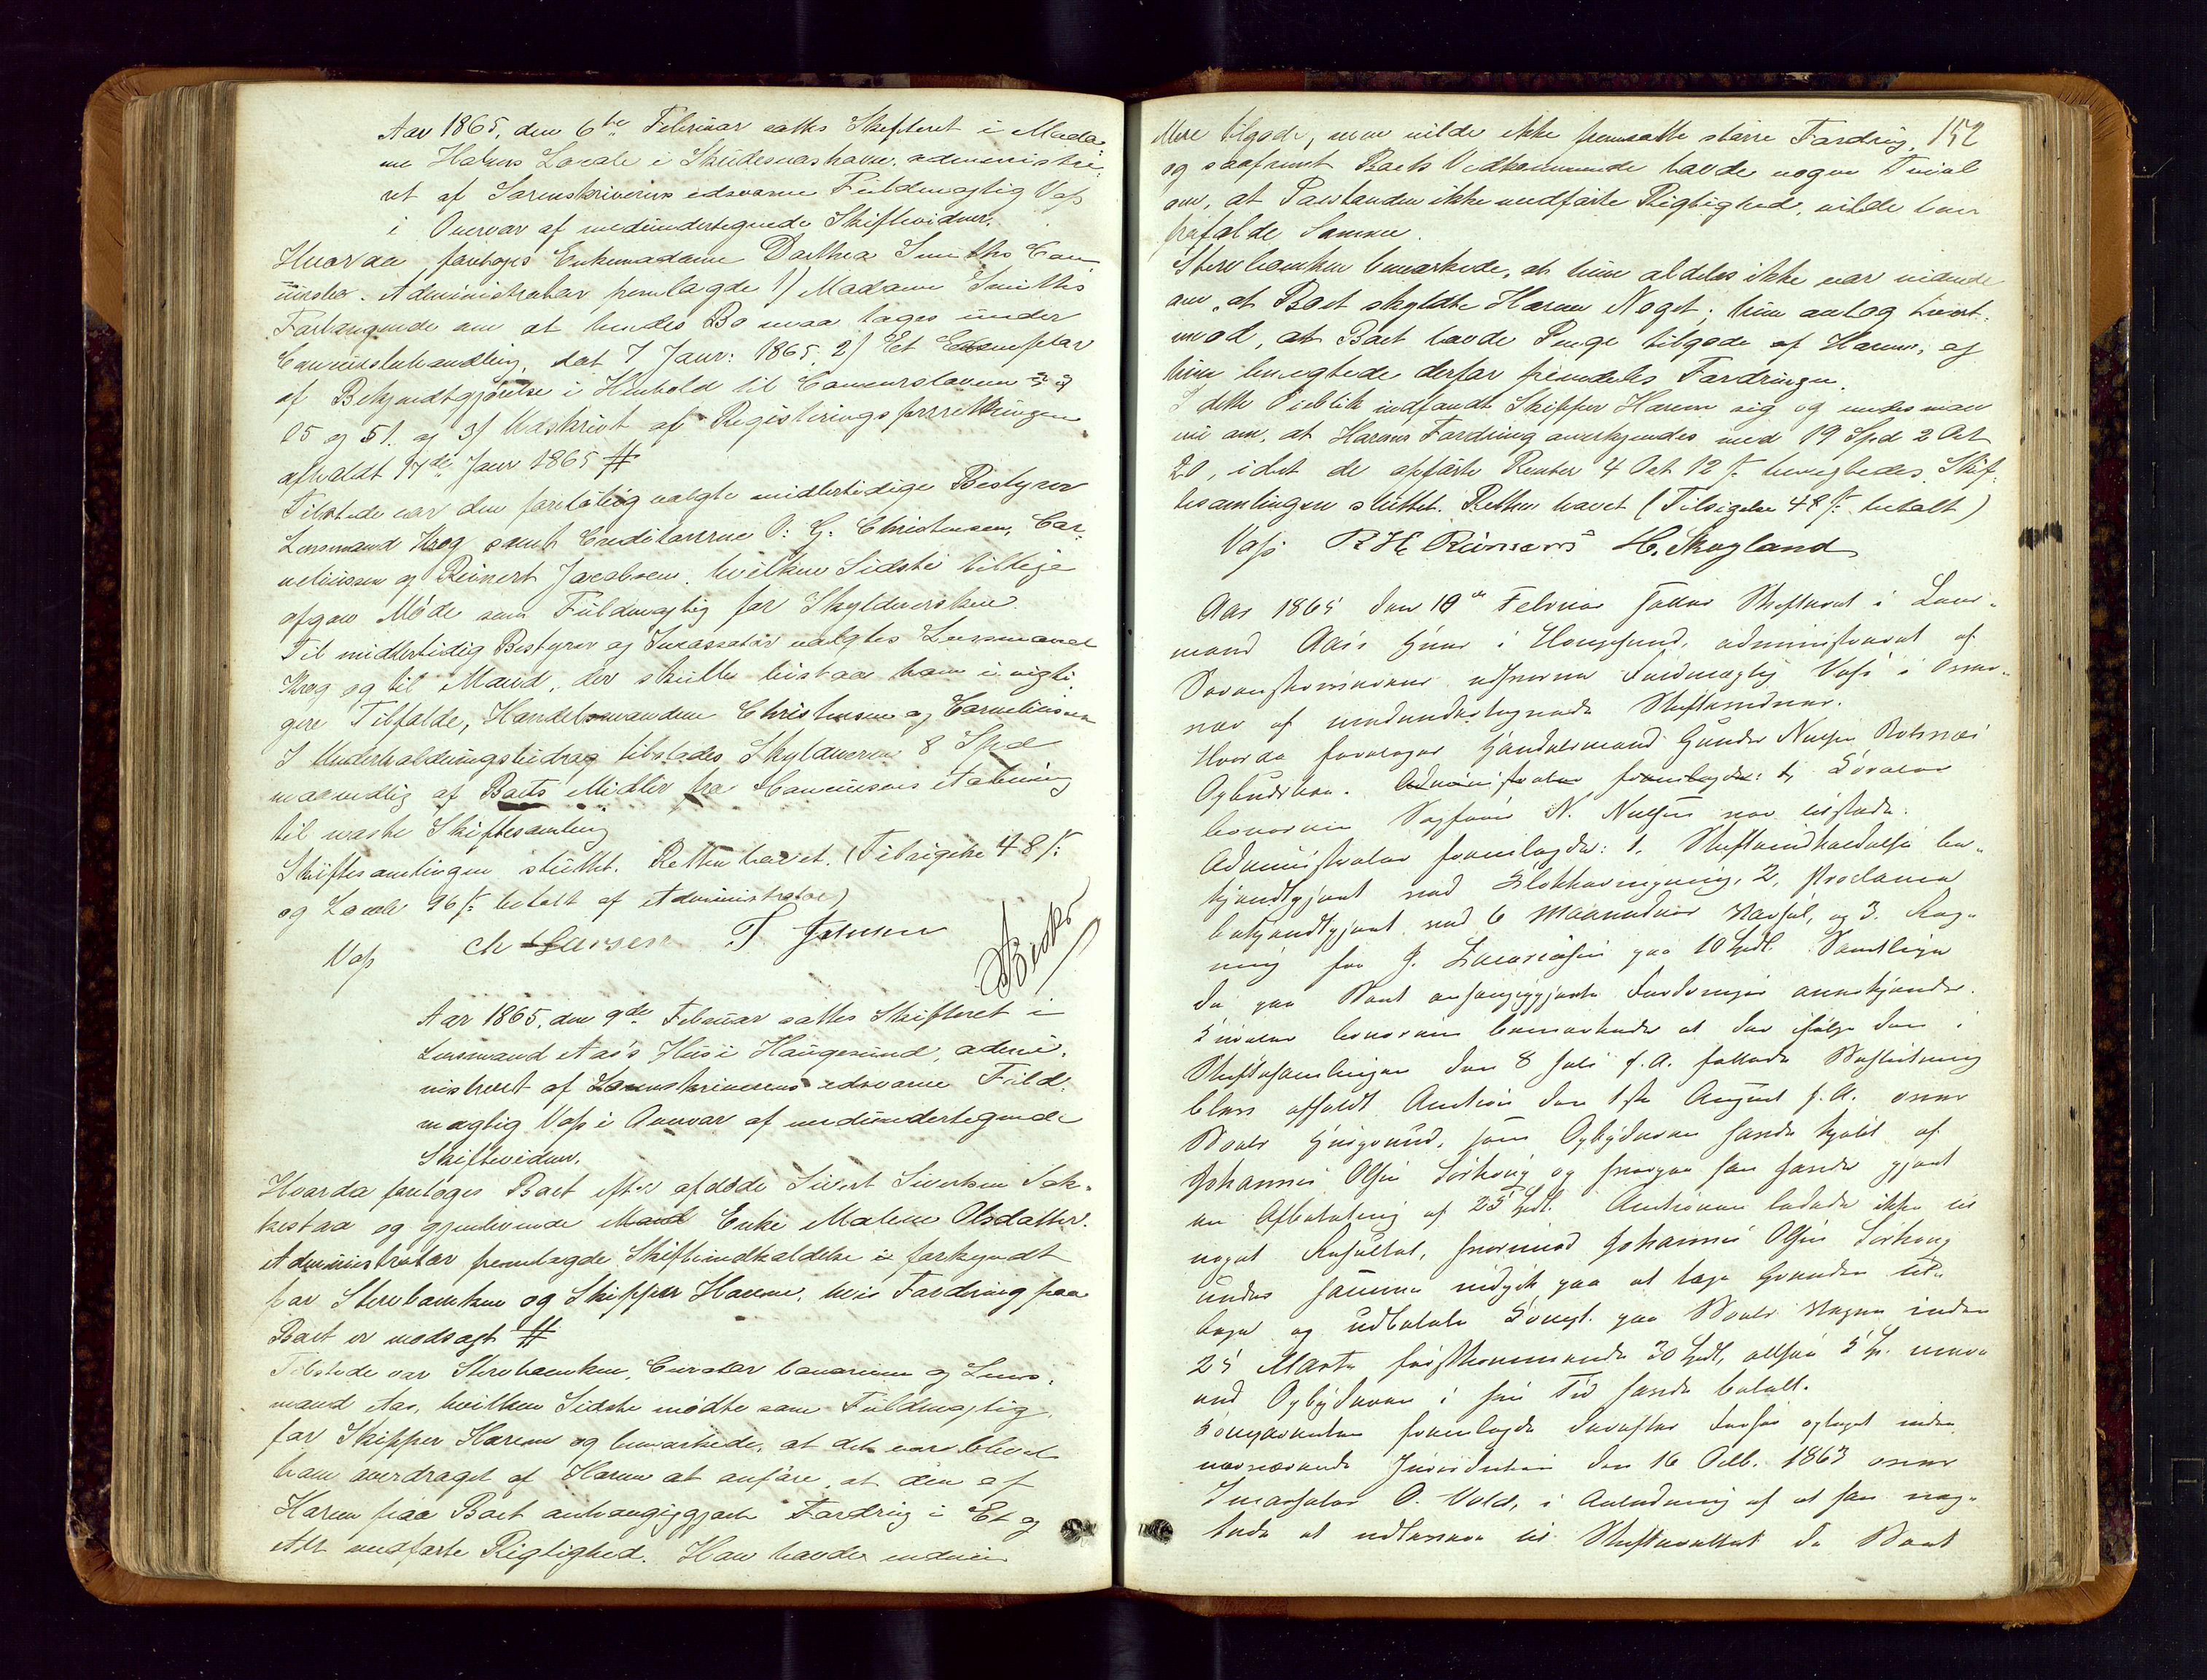 Aar 1865, den 6te Februar sattes Skifteret i Mada-
me Holms Locale i Skudesnæshavn, administre-
ret af Sorenskriverens edsvorne Fuldmægtig Vos
i Overvær af medundertegnede Skiftevidner.
Hvorda foretoges Enkemadame Dorthea Smiths Con-
cursbo. Administrator fremlagde 1/ Madame Smiths
Forlangende om at hendes Bo maa tages under
Concursbehandling, dat 7 Janr: 1865. 2/ Et Exemplar
af Bekjendtgjørelse i Henhold til Concurslovens §§
25 og 51. og 3/ Udskrivt af Registeringsforretningen
afholdt 17de Janr 1865 #
Tilstede var den foreløbig valgte midlertidige Bestyrer
Lensmand Krog samt Creditorerne O: G: Christensen, Cor-
neliussen og Reinert Jacobsen, hvilken Sidste tillige
afgav Møde som Fuldmægtig for Skyldnersken.
Til midlertidig Bestyrer og Incassator valgtes Lensmand
Krog og til Mænd, der skulle bistaa ham i vigti-
gere Tilfælde, Handelsmændene Christensen og Corneliussen
I Underholdningsbidrag tilstodes Skyldneren 8 Spd
maanedlig af Boets Midler fra Concursens Aabning
til næste Skiftesamling
Skiftesamlingen sluttet. Retten hævet. (Tilsigelse 48 s:
og Locale 96 s: betalt af Administrator)
Vos Ch Larsen T Jensen
Aar 1865, den 9de Februar sattes Skifteret i
Lensmand Aas's Hus i Haugesund, admi-
nistreret af Sorenskriverens edsvorne Fuld-
mægtig Vos i Overvær af medundertegnede
Skiftevidner.
Hvorda foretoges Boet efter afdøde Sivert Sivertsen Sak-
kestad og gjenlevende Mand Enke Malene Olsdatter.
Administrator fremlagde Skifteindkaldelse forkyndt
for Stervboenken og Skipper Harem, hvis Fordring paa
Boet er modsagt #
Tilstede var Stervboenken, Curator bonorum og Lens-
mand Aas, hvilken Sidste mødte som Fuldmægtig
for Skipper Harem og bemærkede, at det var blevet
ham overdraget af Harem at anføre, at den af
Harem paa Boet anhængiggjorte Fordring i Et og
Alt medførte Rigtighed. Han havde endnu
Mere tilgode, men vilde ikke fremsætte større Fordring, 152
og saafremt Boets Vedkommende havde nogen Tvivl
om, at Paastanden ikke medførte Rigtighed, vilde han
frafalde Samme.
Stervboenken bemærkede, at hun aldeles ikke var vidende
om, at Boet skyldte Harem Noget; hun antog tvært-
imod, at Boet havde Penge tilgode af Harem, og
hun benegtede derfor fremdeles Fordringen.
I dette Øieblik indfandt Skipper Harem sig og enedes man
nu om, at Harems Fordring anerkjendes med 19 Spd 2 Ort
20, idet de opførte Renter 4 Ort 12 s. benegtedes. Skif-
tesamlingen sluttet. Retten hævet (Tilsigelse 48 s: betalt)
Vos H. Skogland
Aar 1865 den 10de Februar sattes Skifteret i Lens-
mand Aas's Huus i Haugesund, administreret af
Sorenskriverens edsvorne Fuldmægtig Vos i Over-
vær af medundertegnede Skiftevidner.
Hvorda foretoges Handelsmand Gunder Nielsen
Opbudsbo. Administrator fremlagde: 1, Curator
bonorum Sagfører N. Nielsen var tilstede.
Administrator fremlagde: 1. Skifteindkaldelse be-
kjendtgjort ved Klokkeringning, 2, Proclama
bekjendtgjort med 6 Maaneders Varsel, og 3. Reg-
ning fra paa 10 Spdl. Samtlige
de paa Boet anhængiggjorte Fordringer anerkjendes.
Curator bonorum bemærkede at der ifølge den i
Skiftesamlingen den 8 Juli f.A. fattede Beslutning
blev afholdt Auction den 1ste August f.A. over
Boets Huusgrund, som Opbyderen havde kjøbt af
Johannes Olsen Sørhoug og hvorpaa han havde gjort
en Afbetaling af 25 Spdl. Auctionen ledede ikke til
noget Resultat, hvorimod Johannes Olsen Sørhoug
under samme indgik paa at tage Grunden til-
bage og udbetale Compt. paa Boets Vegne inden
25 Marts førstkommende 30 Spdl, altsaa 5 Sp. mere
end Opbyderen i sin Tid havde betalt.
Comparenten fremlagde derefter Forhør optaget inden
nærværende Jurisdiction den 16 Octb. 1863 over
Incassator O. Vold, i Anledning af at han neg-
tede at udlevere til Skifteretten de Boet